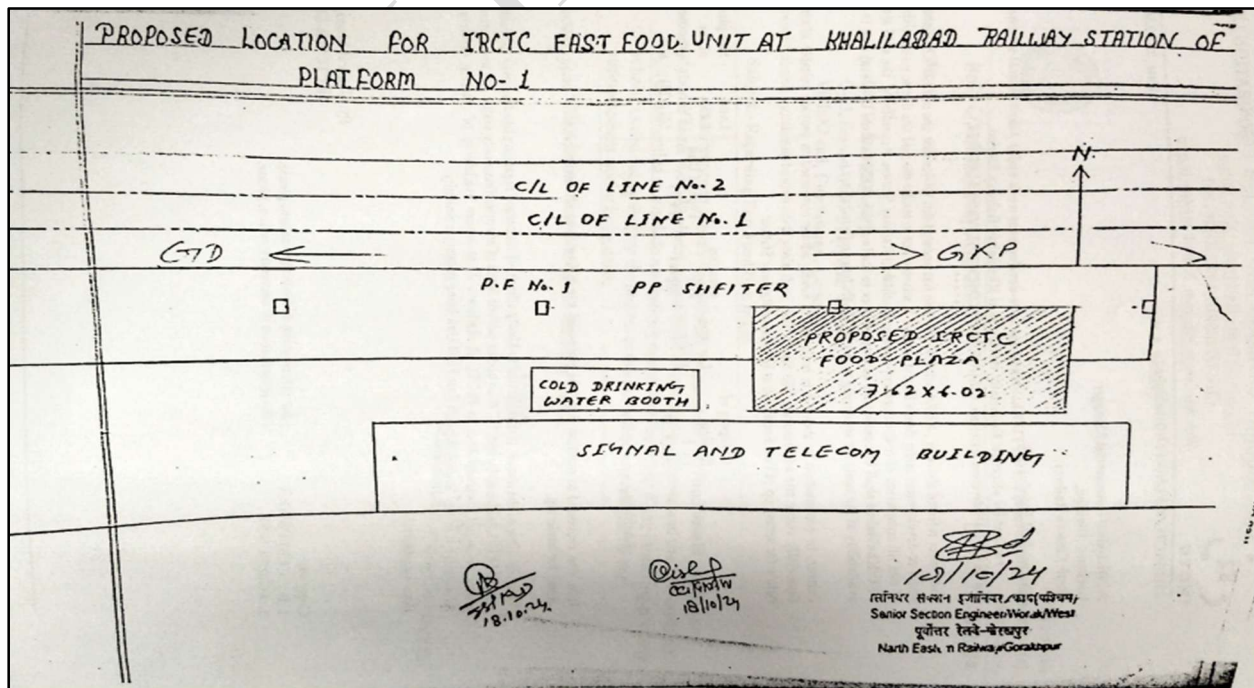 PROPOSED LOCATION FOR IRCTC FAST FOOD UNIT AT KHALILABAD RAILWAY STATION OF
PLATFORM NO-1
N
C/L OF LINE No. 2
C/L OF LINE No. 1
GD
GKP
P.F No. 1 PP SHELTER
PROPOSED IRCTC
FOOD PLAZA
7.62 X 6.02
COLD DRINKING
WATER BOOTH
SIGNAL AND TELECOM BUILDING
18.10.24
18/10/24
18/10/24
Senior Section Engineer/Work/West
पूर्वोत्तर रेलवे-गोरखपुर
North Eastern Railway/Gorakhpur